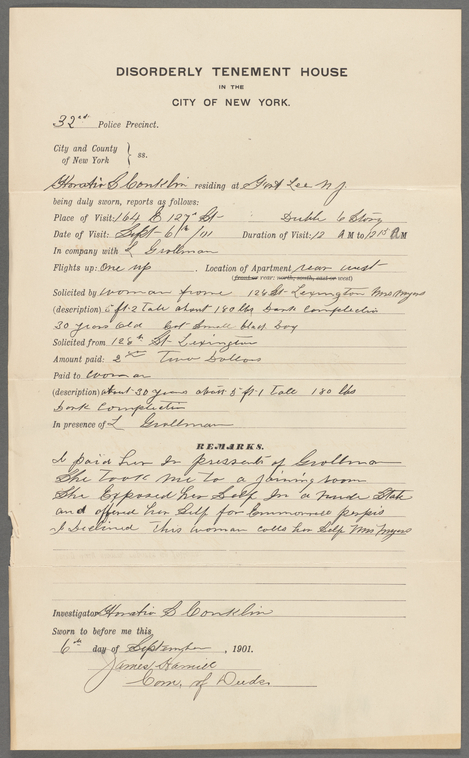 DISORDERLY TENEMENT HOUSE
IN THE
CITY OF NEW YORK.
32nd Police Precinct.
City and County of New York } ss.
Horatio S Conklin residing at Fort Lee NJ
being duly sworn, reports as follows:
Place of Visit: 164 E 127th St Dubble 6 Story
Date of Visit: Sept 6th /01 Duration of Visit: 12 AM to 1215 AM
In company with L Grollman
Flights up: One up. Location of Apartment rear west
(front or rear; north, south, east or west)
Solicited by woman from 126 St Lexington Mrs Myers
(description) 5 ft-2 Tall about 180 lbs Dark Complectin
30 years old Got Small black Dog
Solicited from 126th St Lexington
Amount paid: 2 Two Dollars
Paid to woman
(description) about 30 years about 5 ft-1 Tall 180 lbs
Dark Complectin
In presence of L Grollman
REMARKS.
I paid her In pressents of Grollman
She Took Me to a Joining room
She Exposed her Self In a nude State
and offered her Self for Emmomrice perpis
I Declined This woman calls her Self Mrs Myers
Investigator Horatio S Conklin
Sworn to before me this
6th day of September, 1901.
James Hamill
Com. of Deeds